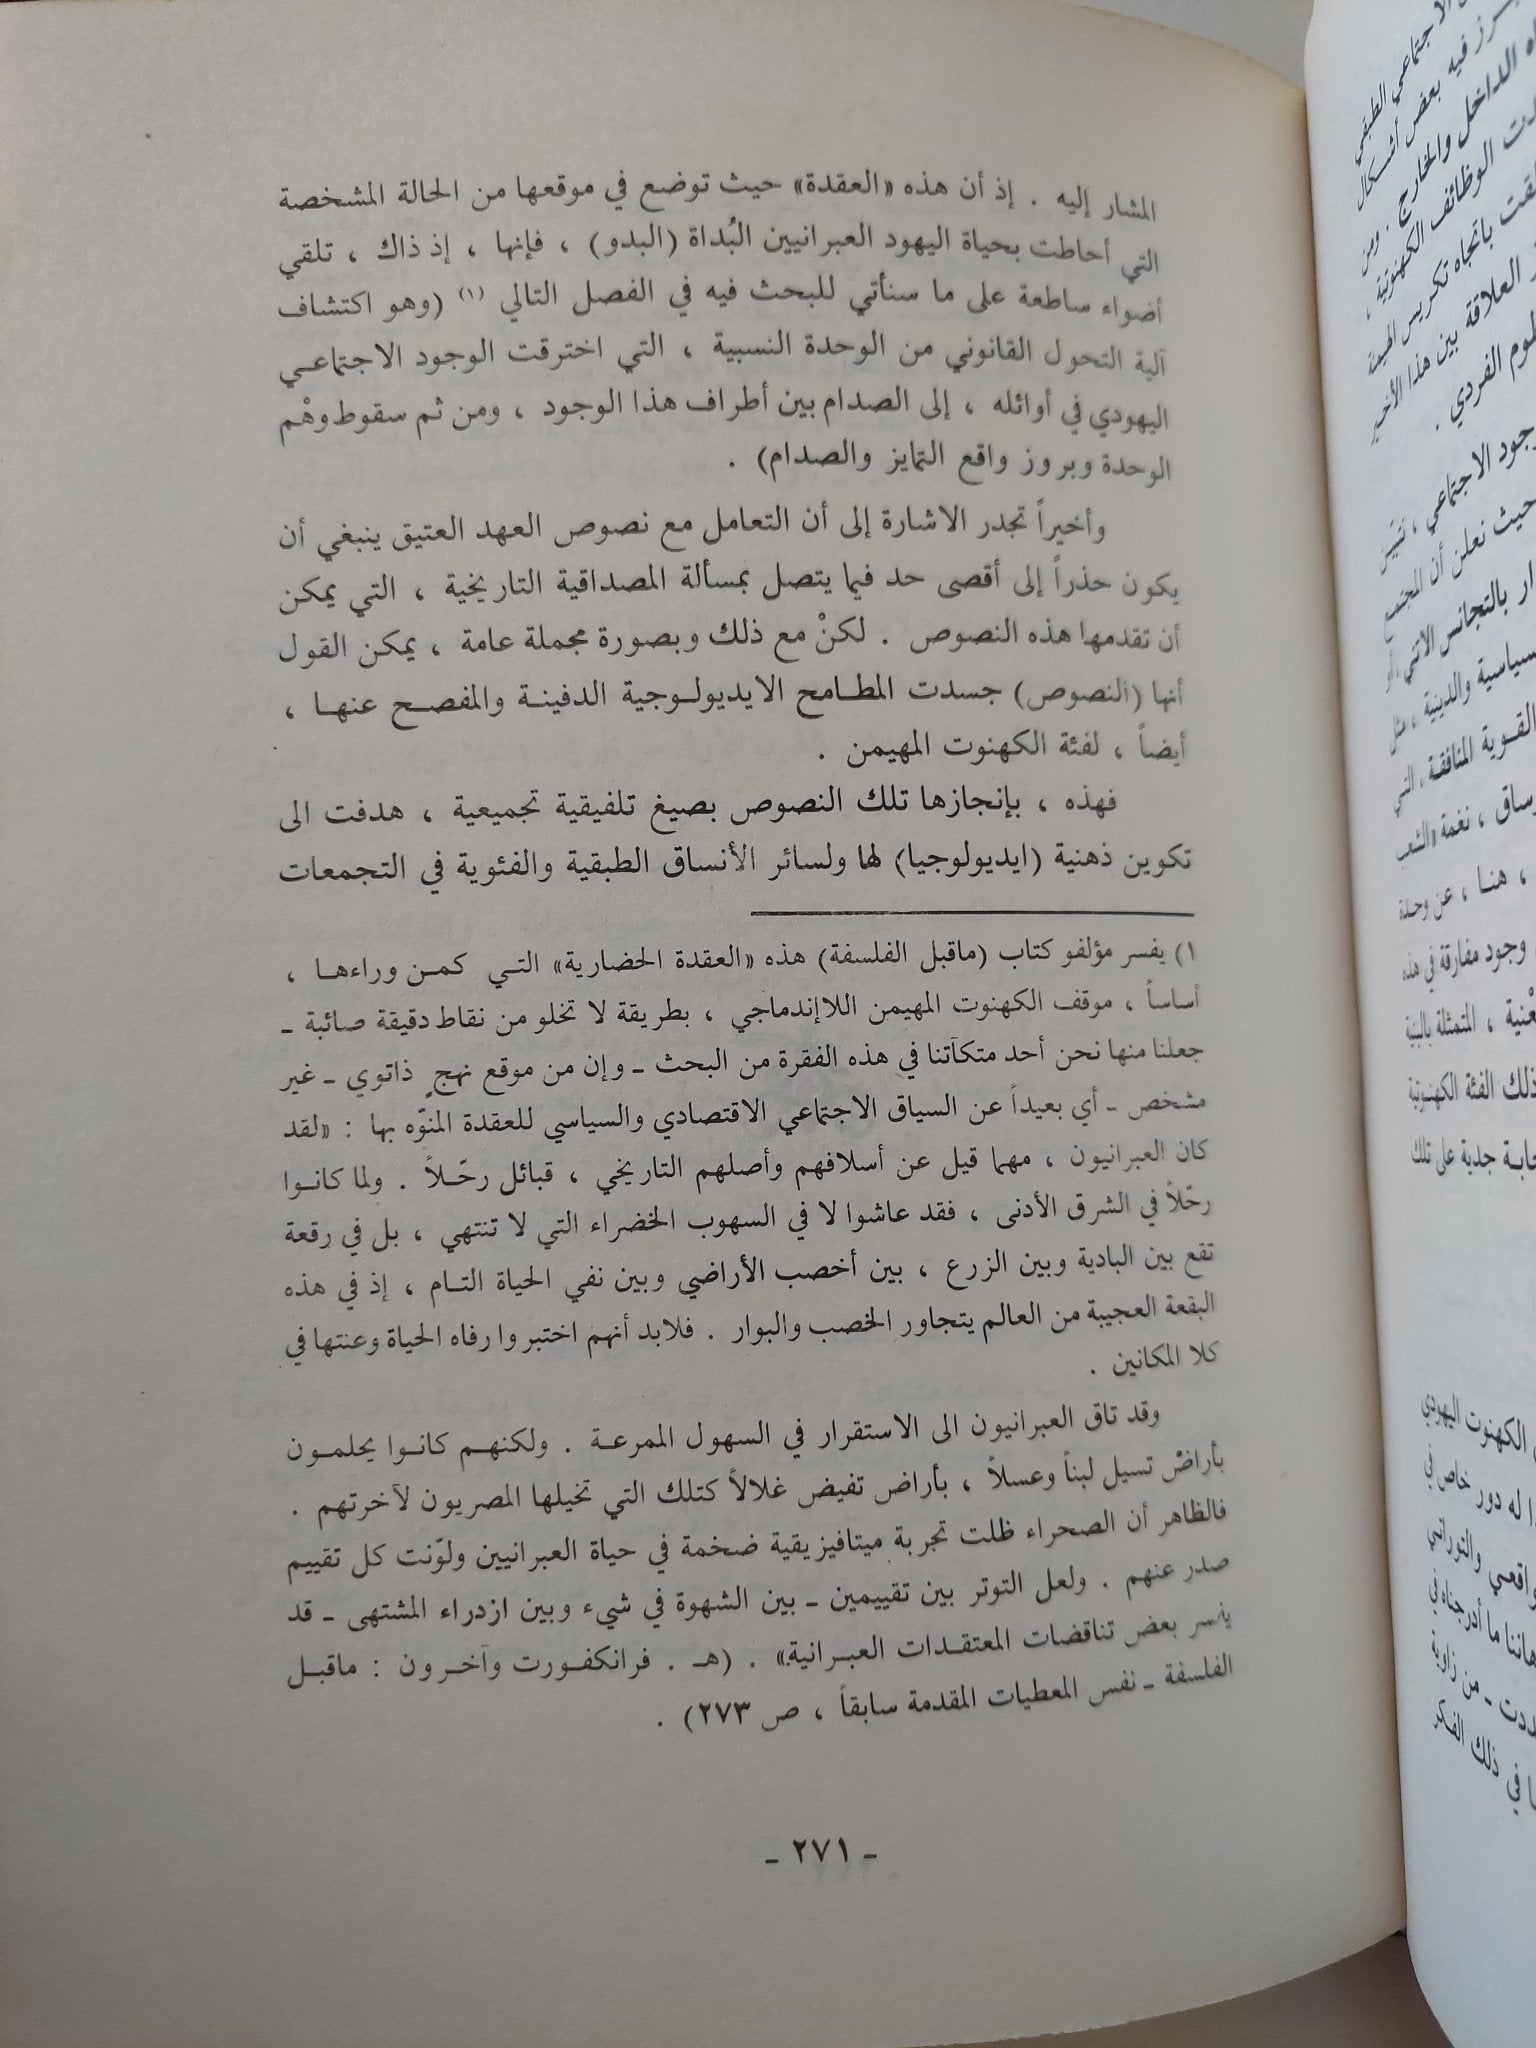 المشار إليه . إذ أن هذه «العقدة» حيث توضع في موقعها من الحالة المشخصة
التي أحاطت بحياة اليهود العبرانيين البُداة (البدو) ، فإنها ، إذ ذاك ، تلقي
أضواء ساطعة على ما سنأتي للبحث فيه في الفصل التالي (١) (وهو اكتشاف
آلية التحول القانوني من الوحدة النسبية ، التي اخترقت الوجود الاجتماعي
اليهودي في أوائله ، إلى الصدام بين أطراف هذا الوجود ، ومن ثم سقوط وهْم
الوحدة وبروز واقع التمايز والصدام) .
وأخيراً تجدر الاشارة إلى أن التعامل مع نصوص العهد العتيق ينبغي أن
يكون حذراً إلى أقصى حد فيما يتصل بمسألة المصداقية التاريخية ، التي يمكن
أن تقدمها هذه النصوص . لكنْ مع ذلك وبصورة مجملة عامة ، يمكن القول
أنها (النصوص) جسدت المطامح الايديولوجية الدفينة والمفصح عنها ،
أيضاً ، لفئة الكهنوت المهيمن .
فهذه ، بإنجازها تلك النصوص بصيغ تلفيقية تجميعية ، هدفت الى
تكوين ذهنية (ايديولوجيا) لها ولسائر الأنساق الطبقية والفئوية في التجمعات
١) يفسر مؤلفو كتاب (ماقبل الفلسفة) هذه «العقدة الحضارية» التي كمن وراءها ،
أساساً ، موقف الكهنوت المهيمن اللاإندماجي ، بطريقة لا تخلو من نقاط دقيقة صائبة ـ
جعلنا منها نحن أحد متكآتنا في هذه الفقرة من البحث ـ وإن من موقع نهجٍ ذاتوي ـ غير
مشخص ـ أي بعيداً عن السياق الاجتماعي الاقتصادي والسياسي للعقدة المنوّه بها : «لقد
كان العبرانيون ، مهما قيل عن أسلافهم وأصلهم التاريخي ، قبائل رحّلاً . ولما كانوا
رحّلاً في الشرق الأدنى ، فقد عاشوا لا في السهوب الخضراء التي لا تنتهي ، بل في رقعة
تقع بين البادية وبين الزرع ، بين أخصب الأراضي وبين نفي الحياة التام ، إذ في هذه
البقعة العجيبة من العالم يتجاور الخصب والبوار . فلابد أنهم اختبروا رفاه الحياة وعنتها في
كلا المكانين .
وقد تاق العبرانيون الى الاستقرار في السهول الممرعة . ولكنهم كانوا يحلمون
بأراضْ تسيل لبناً وعسلاً ، بأراض تفيض غلالاً كتلك التي تخيلها المصريون لآخرتهم .
فالظاهر أن الصحراء ظلت تجربة ميتافيزيقية ضخمة في حياة العبرانيين ولوّنت كل تقييم
صدر عنهم . ولعل التوتر بين تقييمين ـ بين الشهوة في شيء وبين ازدراء المشتهى ـ قد
يفسر بعض تناقضات المعتقدات العبرانية» . (هـ . فرانكفورت وآخرون : ماقبل
الفلسفة ـ نفس المعطيات المقدمة سابقاً ، ص ٢٧٣) .
ـ ٢٧١ ـ